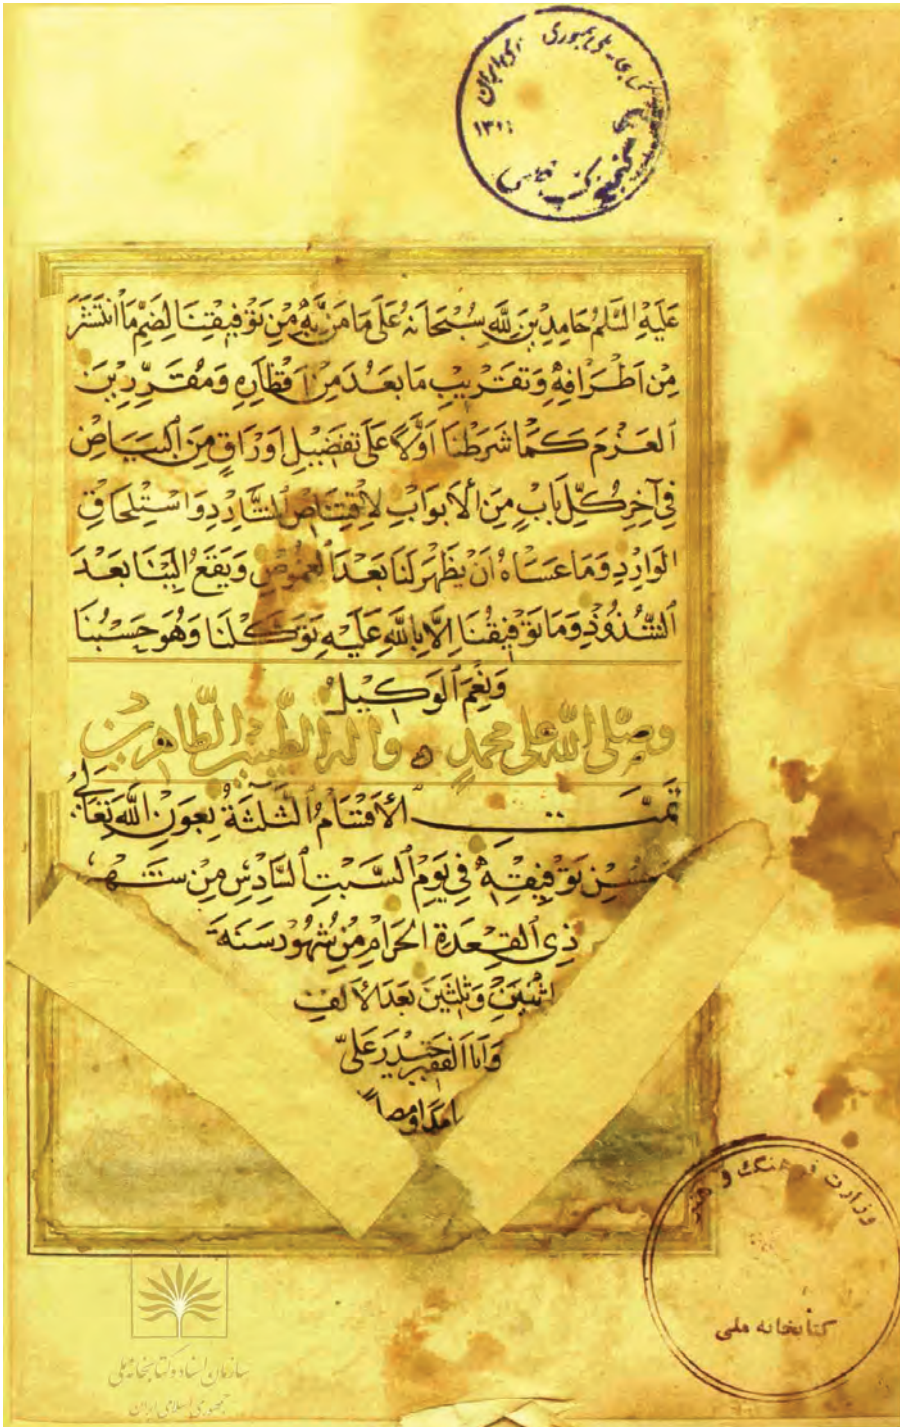 عَلَيْهِ السَّلَمُ حَامِدِيْنَ لِلَّهِ سُبْحَانَهُ عَلَى مَا مَنَّ بِهِ مِنْ تَوْفِيقِنَا لِضَمِّ مَا انْتَشَرَ
مِنْ اَطْرَافِهِ وَتَقْرِيْبِ مَا بَعُدَ مِنْ اَقْطَارِهِ وَمُقَرِّرِيْنَ
العَزْمَ كَمَا شَرَطْنَا اَوَّلًا عَلَى تَفْضِيْلِ اَوْرَاقٍ مِنَ البَيَاضِ
فِي آخِرِ كُلِّ بَابٍ مِنَ الْأَبْوَابِ لِاقْتِنَاصِ الشَّارِدِ وَاسْتِلْحَاقِ
الْوَارِدِ وَمَا عَسَاهُ اَنْ يَظْهَرَ لَنَا بَعْدَ الْغُمُوضِ وَيَقَعَ اِلَيْنَا بَعْدَ
الشُّذُوْذِ وَمَا تَوْفِيْقُنَا اِلَّا بِاللَّهِ عَلَيْهِ تَوَكَّلْنَا وَهُوَ حَسْبُنَا
وَنِعْمَ الوَكِيْلُ
وصلى الله على محمد وآله الطيبين الطاهرين
تَمَّتْ الْأَقْسَامُ الثَّلَثَةُ بِعَوْنِ اللَّهِ تَعَالَى
تَوْفِيْقِهِ فِي يَوْمِ السَّبْتِ السَّادِسِ مِنْ شَهْر
ذِي القِعْدَةِ الحَرَامِ مِنْ شُهُوْرِ سَنَةَ
اثْنَيْنِ وَثَلَثَيْنَ بَعْدَ الْأَلْفِ
وَاَنَا الْفَقِيْر حَيْدَر عَلِيّ
وزارت فرهنگ و هنر
کتابخانه ملی
سازمان اسناد و کتابخانه ملی
جمهوری اسلامی ایران